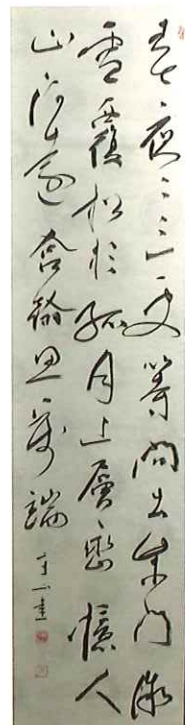 春夜二三更等間出柴門微
雪覆松杉孤月上層巒憶人
山河遠含翰思萬端